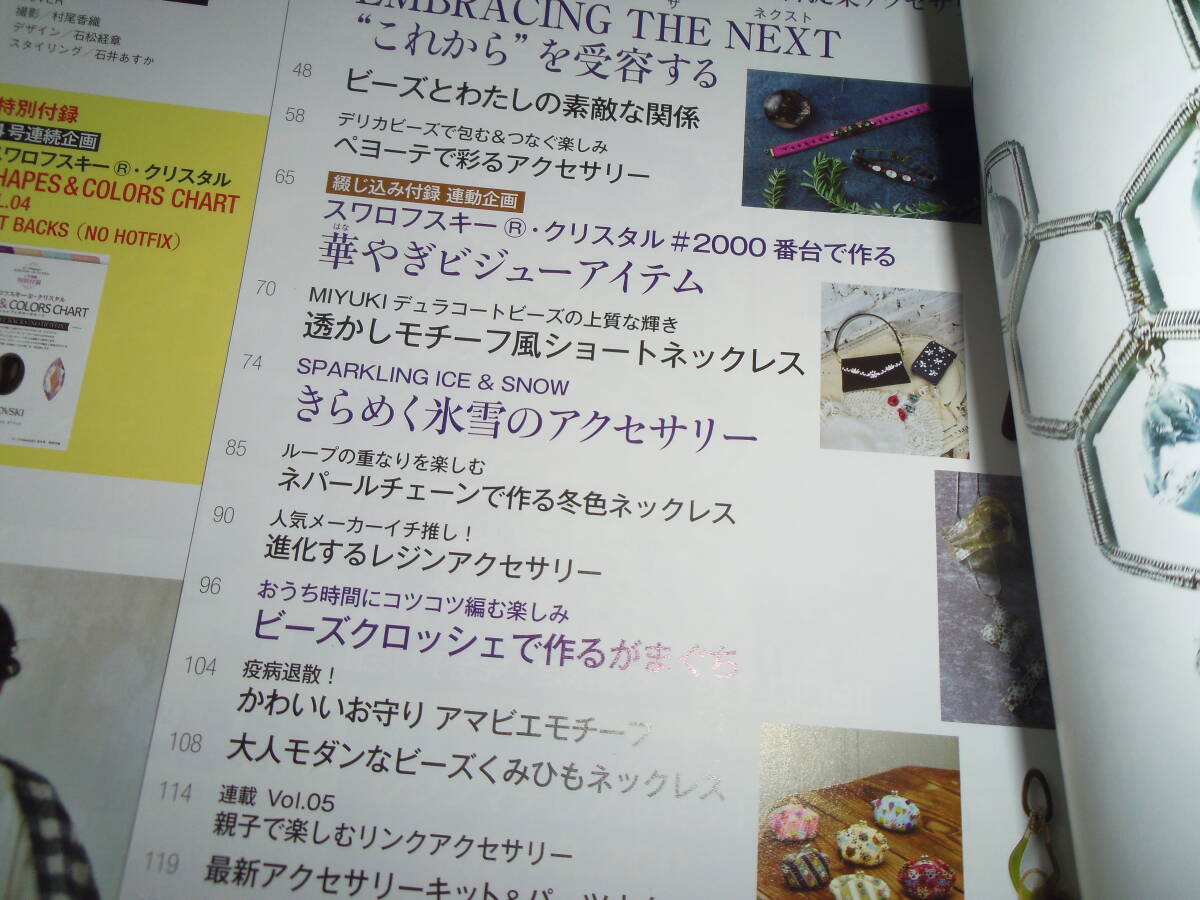 撮影／村尾香織
デザイン／石松経章
スタイリング／石井あすか
特別付録
号連続企画
スワロフスキー®・クリスタル
HAPES & COLORS CHART
L.04
T BACKS（NO HOTFIX）
& COLORS CHART
EMBRACING THE NEXT
ザ
ネクスト
“これから”を受容する
48
ビーズとわたしの素敵な関係
58
デリカビーズで包む＆つなぐ楽しみ
ペヨーテで彩るアクセサリー
65
綴じ込み付録 連動企画
スワロフスキー®・クリスタル＃2000番台で作る
はな
華やぎビジューアイテム
70
MIYUKI デュラコートビーズの上質な輝き
透かしモチーフ風ショートネックレス
74
SPARKLING ICE & SNOW
きらめく氷雪のアクセサリー
85
ループの重なりを楽しむ
ネパールチェーンで作る冬色ネックレス
90
人気メーカーイチ推し！
進化するレジンアクセサリー
96
おうち時間にコツコツ編む楽しみ
ビーズクロッシェで作るがまぐち
104
疫病退散！
かわいいお守り アマビエモチーフ
108
大人モダンなビーズくみひもネックレス
114
連載 Vol.05
親子で楽しむリンクアクセサリー
119
最新アクセサリーキット＆パーツ